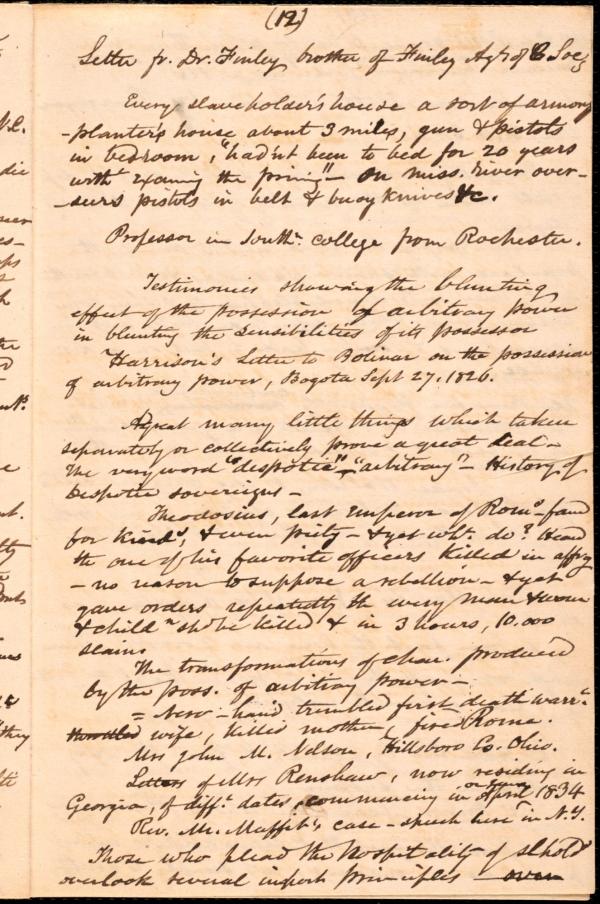 (12)
Letter fr. Dr. Finley brother of Finley Agt of C Socy
Every slaveholder's house a sort of armory
-planter's house about 3 miles, gun & pistols
in bedroom, "hadn't been to bed for 20 years
witht examing the priming" - On Miss. river over-
-seers pistols in belt & buoy knives &c.
Professor in Southn. college from Rochester.
Testimonies showing the blunting
effect of the possession of arbitrary power
in blunting the sensibilities of its possessor
Harrison's Letter to Bolivar on the possession
of arbitrary power, Bogota Sept 27, 1826.
A great many little things which taken
separately or collectively prove a great deal -
The very word "despotic", "arbitrary" - History of
Despotic sovereigns -
Theodosius, last Emperor of Rome - famd
for Kindns, & even piety - & yet wht. do? Heard
tht one of his favorite officers killed in affray
- no reason to suppose a rebellion - & yet
gave orders repeatedly tht every man & woman
& child shd be killed & in 3 hours, 10.000
slain
The transformations of char. produced
by the poss. of arbitray power -
= Nero - hand trembled first death warrt.
wife, killed mother, fired Rome.
Mrs John M. Nelson, Hillsboro Co. Ohio.
Letters of Mrs Renshaw, now residing in
Georgia, of difft. dates, commencing in April 1834
Rev. Mr. Maffit's case - speech here in N.Y.
Those who plead the Hospitality of slhold
overlook several import principles